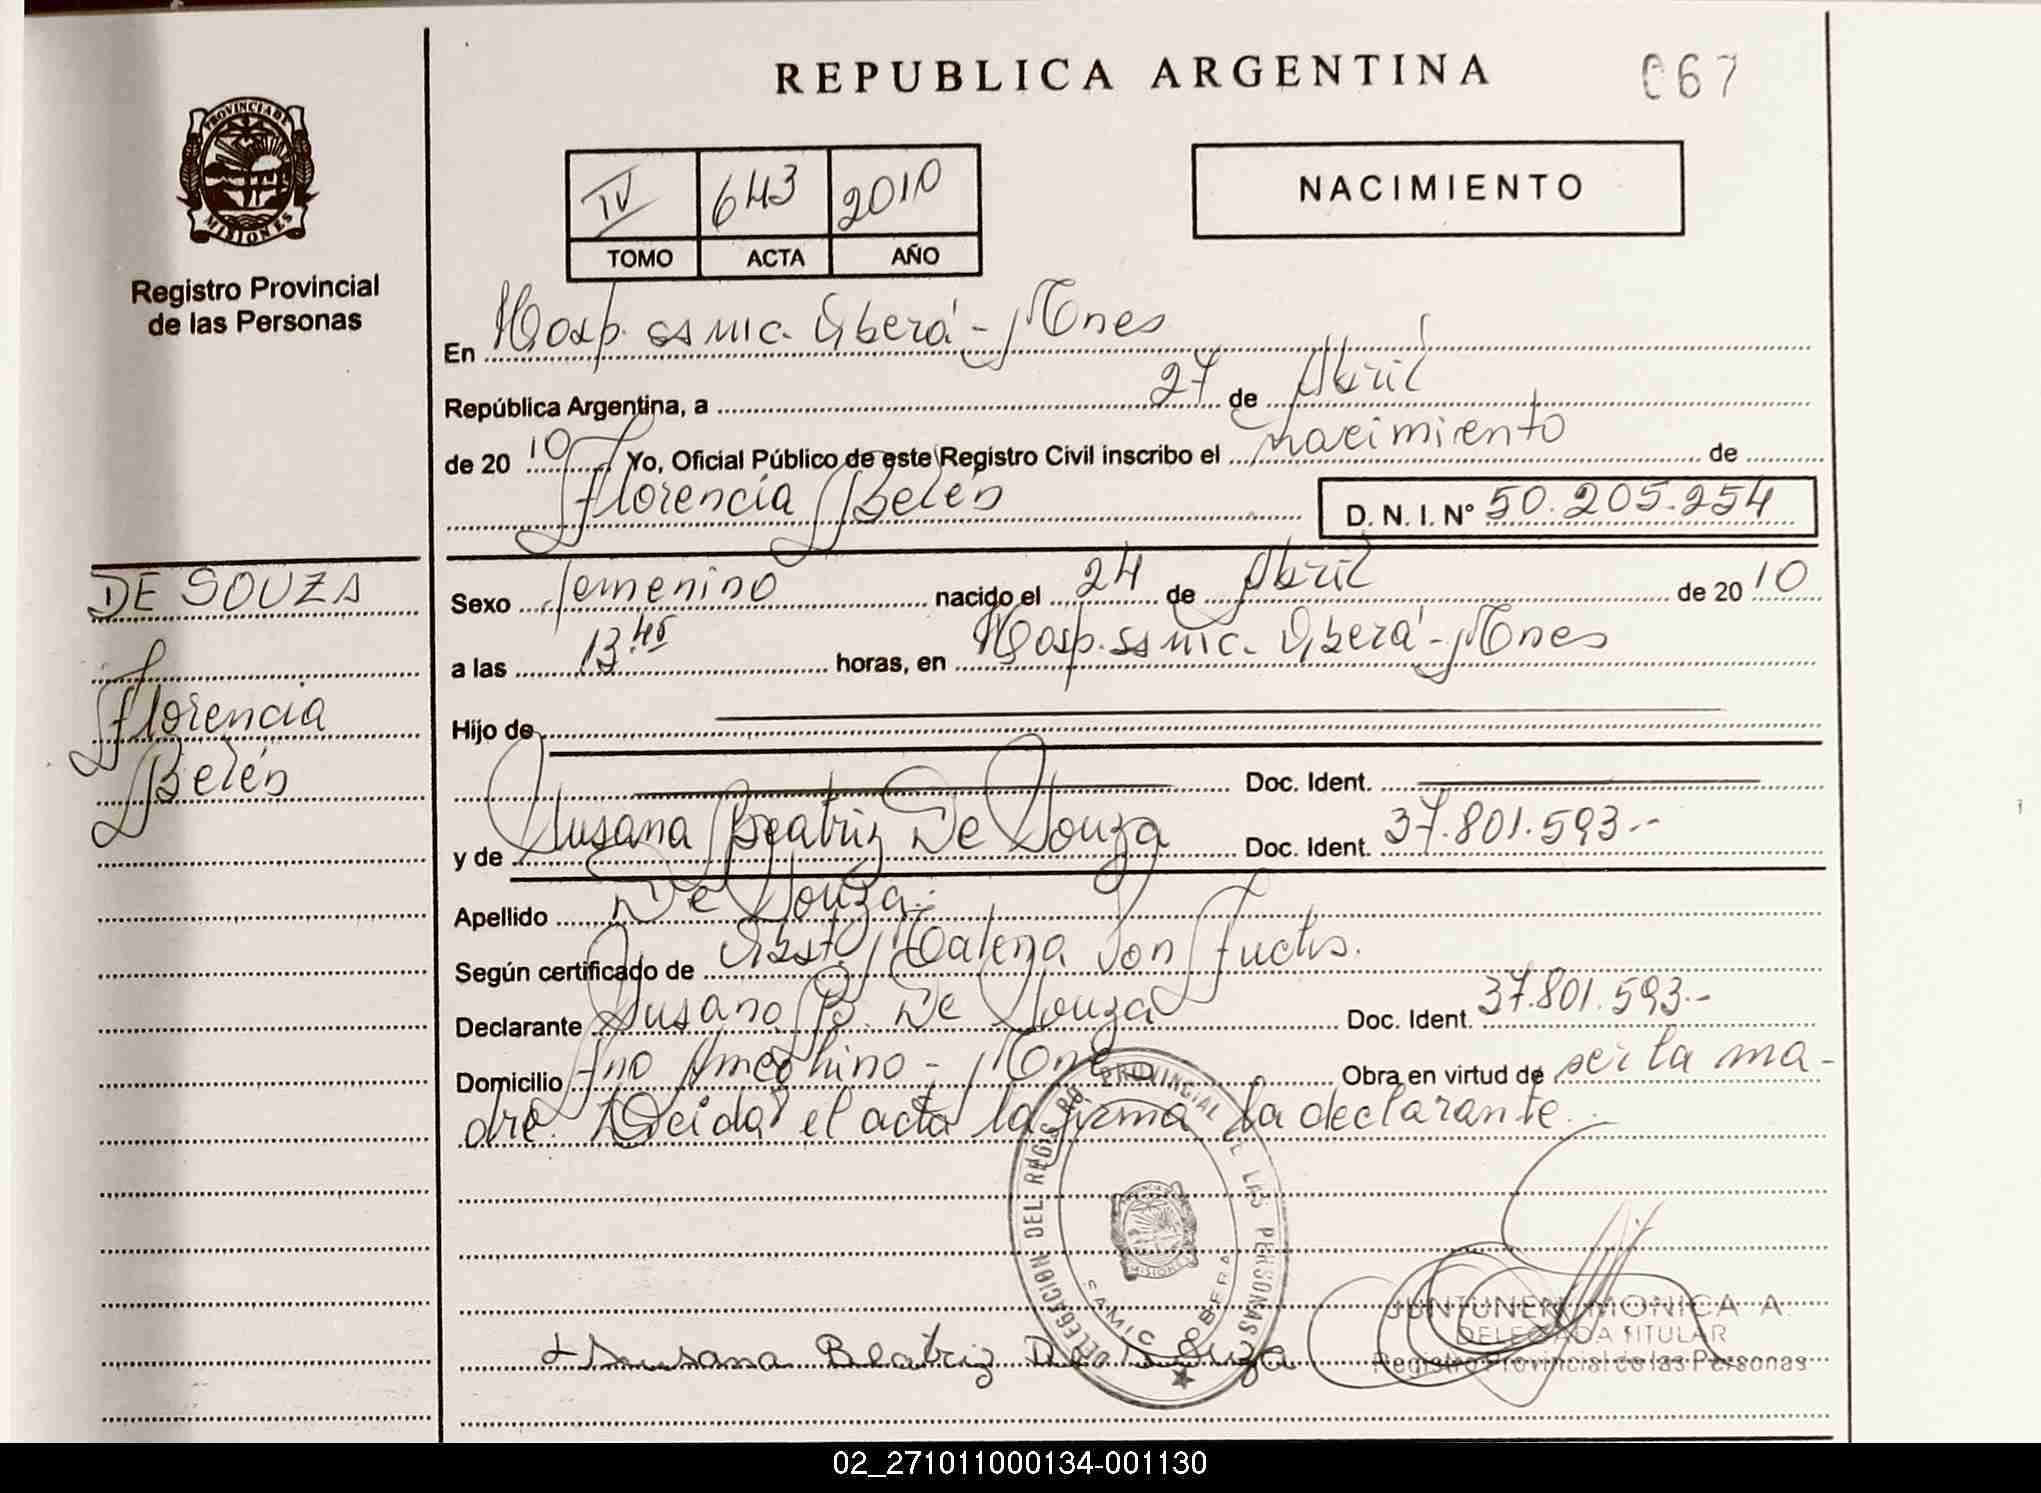 REPUBLICA ARGENTINA
067
PROVINCIA DE
MISIONES
Registro Provincial
de las Personas
IV 643 2010
TOMO ACTA AÑO
NACIMIENTO
En Hosp. SAMIC. Oberá - Mnes
República Argentina, a 27 de Abril
de 20 10 Yo, Oficial Público de este Registro Civil inscribo el nacimiento de
Florencia Belén
D. N. I. Nº 50.205.254
DE SOUZA
Florencia
Belén
Sexo femenino nacido el 24 de Abril de 20 10
a las 13.45 horas, en Hosp. SAMIC. Oberá - Mnes
Hijo de
Doc. Ident.
y de Susana Beatriz De Souza Doc. Ident. 37.801.593.-
Apellido De Souza.
Según certificado de Obst. Von Fuchs.
Declarante Susana B. De Souza Doc. Ident. 37.801.593.-
Domicilio Fno Ameghino - Mnes Obra en virtud de ser la ma-
dre. Leída el acta la firma la declarante.
DELEGACION DEL REGISTRO PROVINCIAL DE LAS PERSONAS
MISIONES
SAMIC OBERA
Susana Beatriz De Souza
JUNTUNEN MONICA A.
DELEGADA TITULAR
Registro Provincial de las Personas
02_271011000134-001130